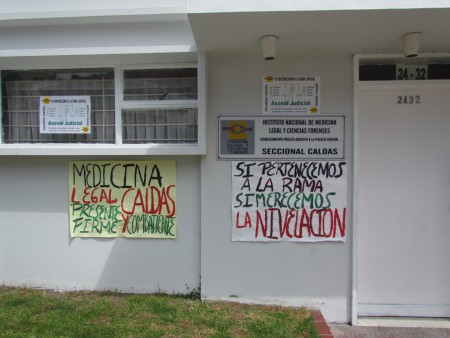 Asonal Judicial
Asonal Judicial
24-32
2432
INSTITUTO NACIONAL DE MEDICINA
LEGAL Y CIENCIAS FORENSES
SECCIONAL CALDAS
MEDICINA
LEGAL CALDAS
PRESENTE Y
FIRME COMBATIENTE
SI PERTENECEMOS
A LA RAMA
SI MERECEMOS
LA NIVELACION